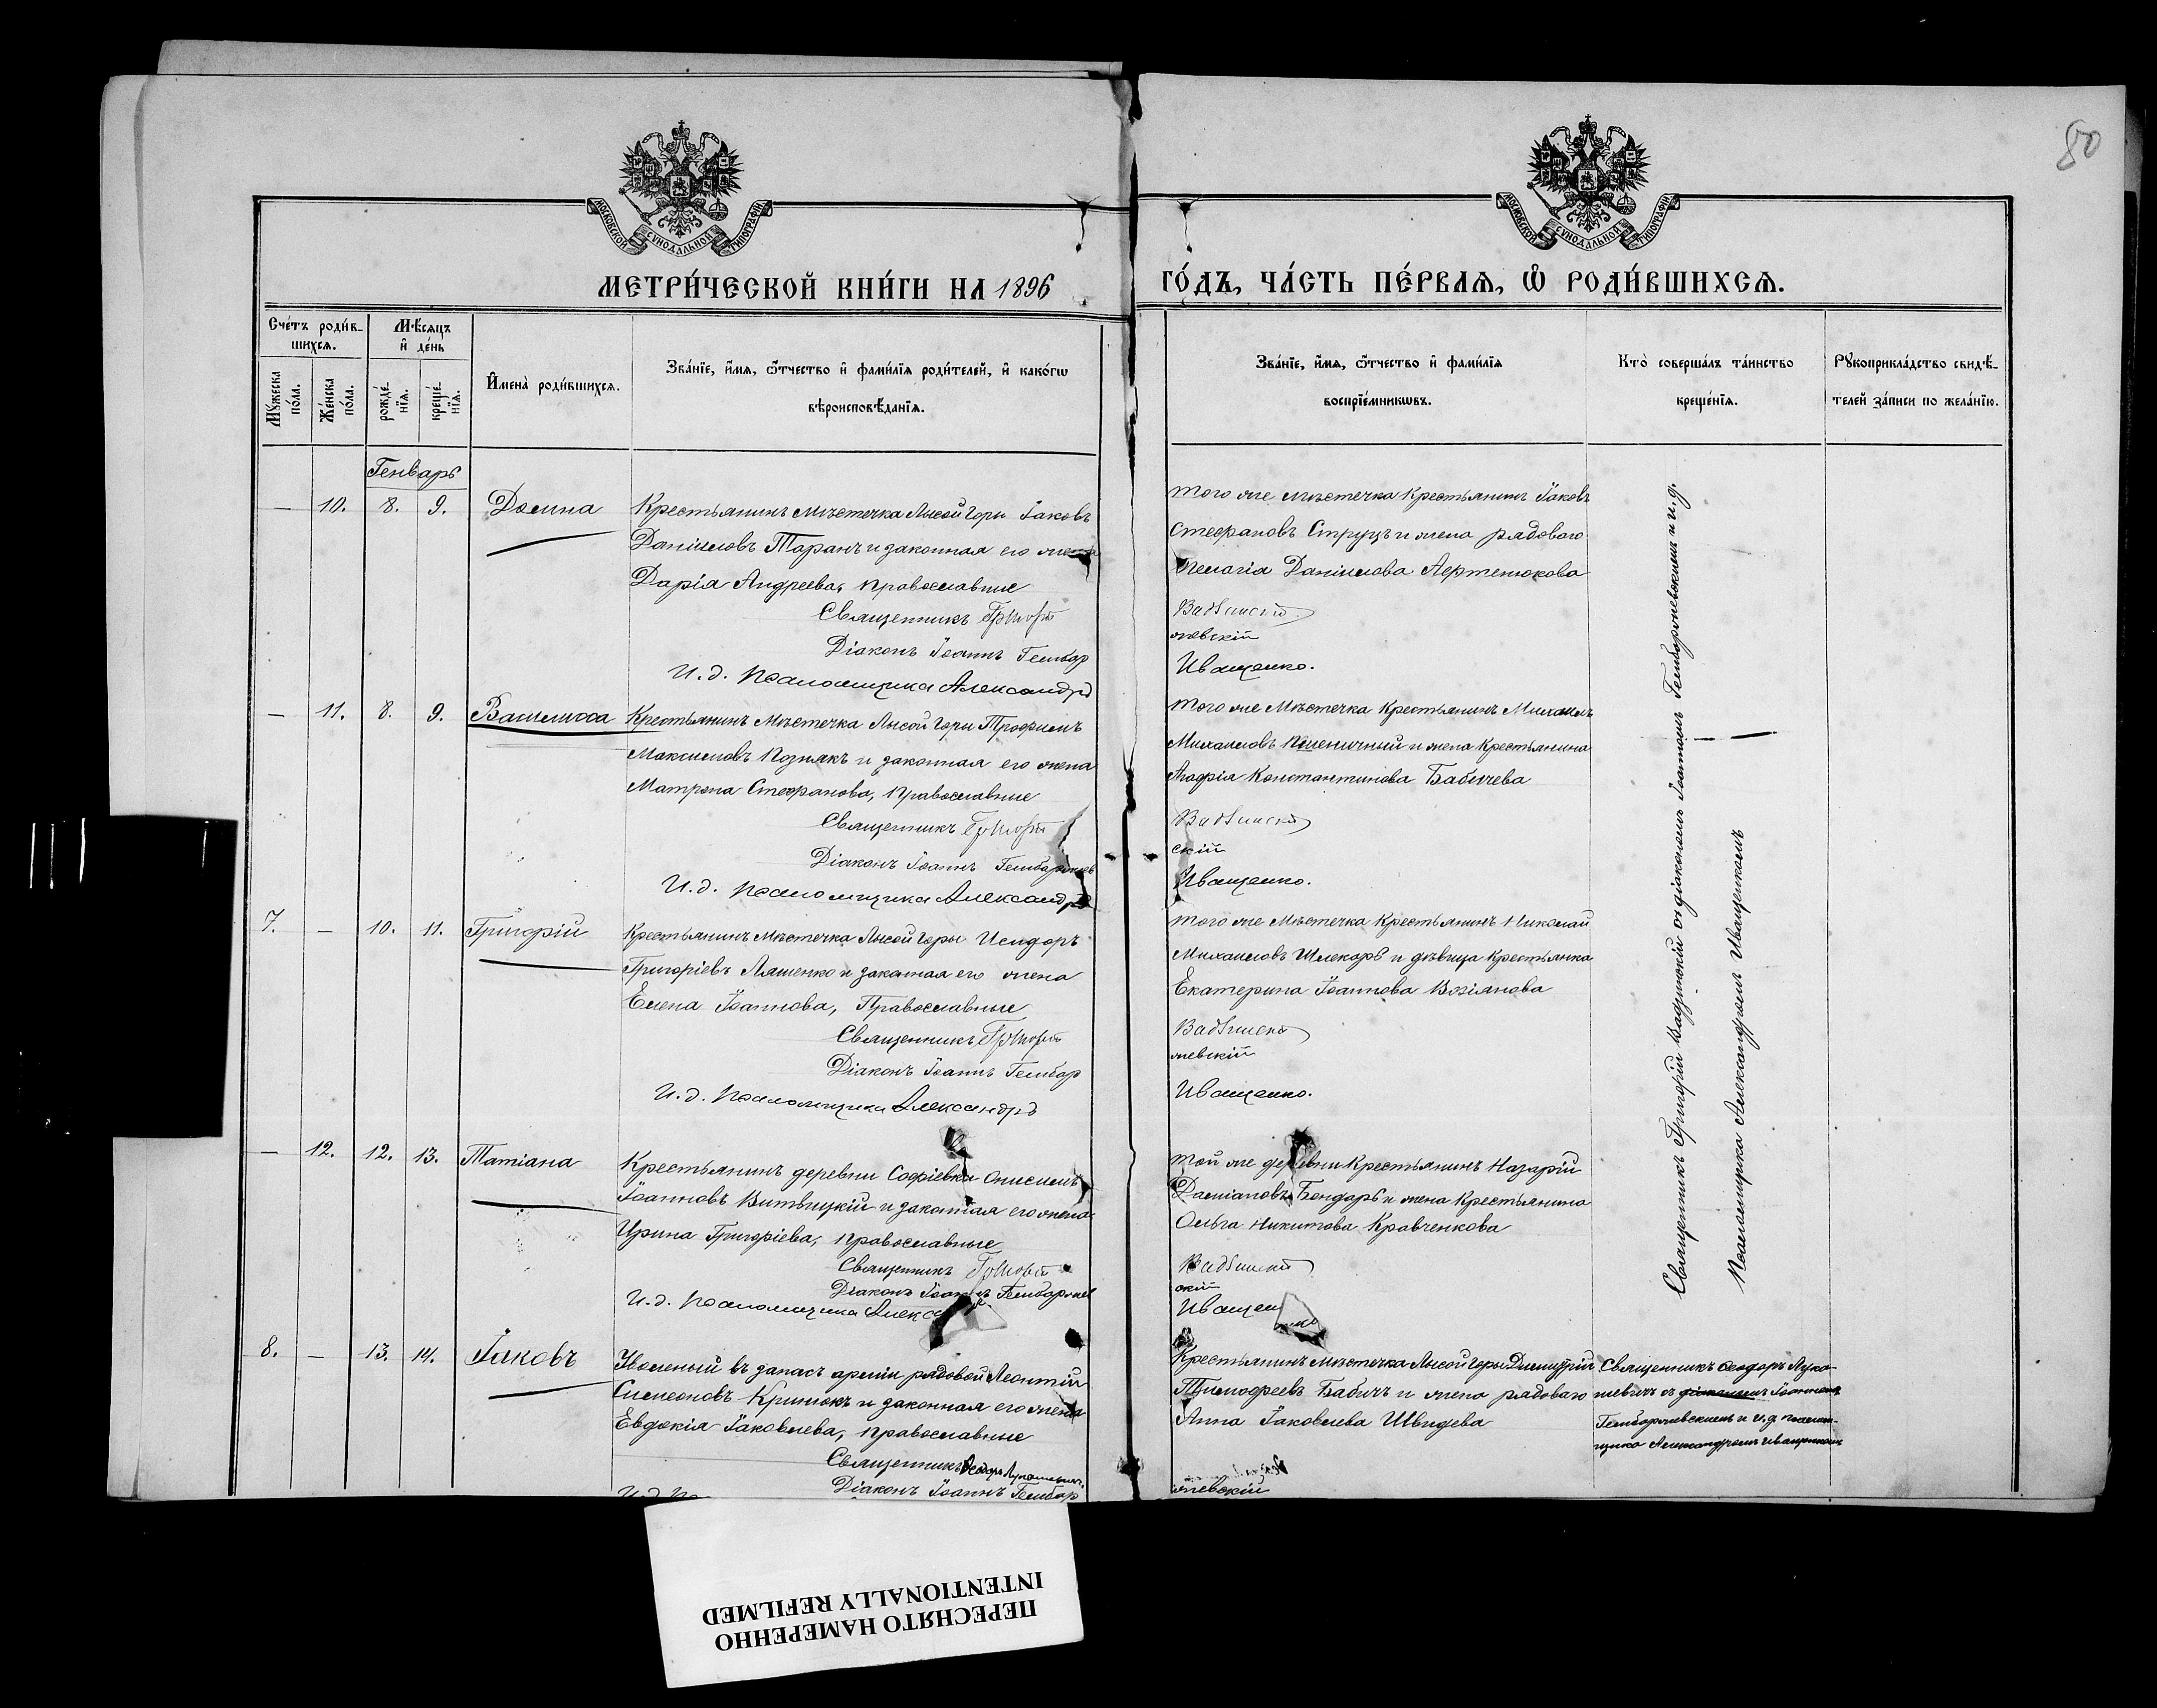 80
МОСКОВСКОЙ СѴНОДАЛЬНОЙ ТИПОГРАФІИ
МОСКОВСКОЙ СѴНОДАЛЬНОЙ ТИПОГРАФІИ
МЕТРИ́ЧЕСКОЙ КНИ́ГИ НА 1896
ГО́ДЪ, ЧА́СТЬ ПЕ́РВАЯ, Ѡ РОДИ́ВШИХСЯ.
Сче́тъ роди́в-
шихся.
Мѣ́сяцъ
и де́нь
Му́жеска
по́ла.
Же́нска
по́ла.
рожде́-
нїя.
креще́-
нїя.
Имена̀ роди́вшихся.
Зва́нїе, и́мя, ѻ҆́тчество и фами́лїя роди́телей, и како́гѡ
вѣроисповѣ́данїя.
Зва́нїе, и́мя, ѻ҆́тчество и фами́лїя
воспрїе́мникѡвъ.
Кто̀ соверша́лъ та́инство
креще́нїя.
Рꙋкоприкла́дство свидѣ́-
телей за́писи по жела́нїю.
Генварь
— 10. 8. 9. Домна
Крестьянинъ мѣстечка Лысой Горы Іаковъ
Даніиловъ Таранъ и законная его жена
Дарія Андреева, православные
Священникъ Григорій
Діаконъ Іоаннъ Гембар
И. д. Псаломщика Александръ
того же мѣстечка Крестьянинъ Іаковъ
Стефановъ Струцъ и жена рядоваго
Пелагія Даніилова Лертенокова
Вадзинскій
жевскій
Иващенко.
— 11. 8. 9. Василисса
Крестьянинъ Мѣстечка Лысой Горы Трофимъ
Максимовъ Познякъ и законная его жена
Матрона Стефанова, православные
Священникъ Григорій
Діаконъ Іоаннъ Гембаржев
И. д. Псаломщика Александръ
того же Мѣстечка Крестьянинъ Михаилъ
Михаиловъ Пшеничный и жена Крестьянина
Агафія Константинова Бабичева
Вадзинскій
скій
Иващенко.
7. — 10. 11. Григорій
Крестьянинъ Мѣстечка Лысой Горы Исидоръ
Григоріевъ Ляшенко и законная его жена
Елена Іоаннова, Православные
Священникъ Григорій
Діаконъ Іоаннъ Гембар
И. д. Псаломщика Александръ
того же Мѣстечка Крестьянинъ Николай
Михаиловъ Шлекарь и дѣвица Крестьянка
Екатерина Іоаннова Возіянова
Вадзинскій
жевскій
Иващенко.
— 12. 12. 13. Татіана
Крестьянинъ деревни Софіевки Онисимъ
Іоанновъ Витвицкій и законная его жена
Ирина Григоріева, православные
Священникъ Григорій
Діаконъ Іоаннъ Гембаржев
И. д. Псаломщика Алекса
той же деревни Крестьянинъ Назарій
Даміановъ Бондарь и жена Крестьянина
Ольга Никитова Кравченкова
Вадзинскій
скій
Иващенко
8. — 13. 14. Іаковъ
Уволеный въ запасъ арміи рядовой Леонтій
Симеоновъ Кринюкъ и законная его жена
Евдокія Іаковлева, православные
Священникъ Ѳеодоръ Лукашевичъ
Діаконъ Іоаннъ Гембар
Крестьянинъ мѣстечка Лысой Горы Димитрій
Тимофеевъ Бабичъ и жена рядоваго
Анна Іаковлева Швидева
жевскій
Священникъ Григорій Вадзинскій съ діакономъ Іоанномъ Гембаржевскимъ и и. д.
Псаломщика Александромъ Иващенкомъ
Священникъ Ѳеодоръ Лука-
шевичъ съ діакономъ Іоанномъ
Гембаржевскимъ и и. д. псалом-
щика Александромъ Иващенкомъ
ПЕРЕСНЯТО НАМЕРЕННО
INTENTIONALLY REFILMED